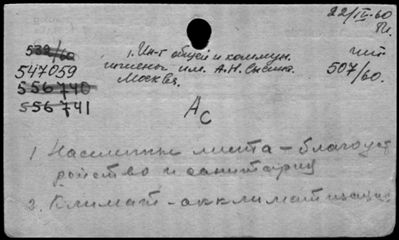 22/IV-60
539/60
547059
556740
556741
1. Ин-т общей и коммун.
гигиены им. А.Н. Сысина.
Москва.
чит
507/60.
Ас
1 Населенные места - благоуст
ройство и санитария
2. Климат - акклиматизация